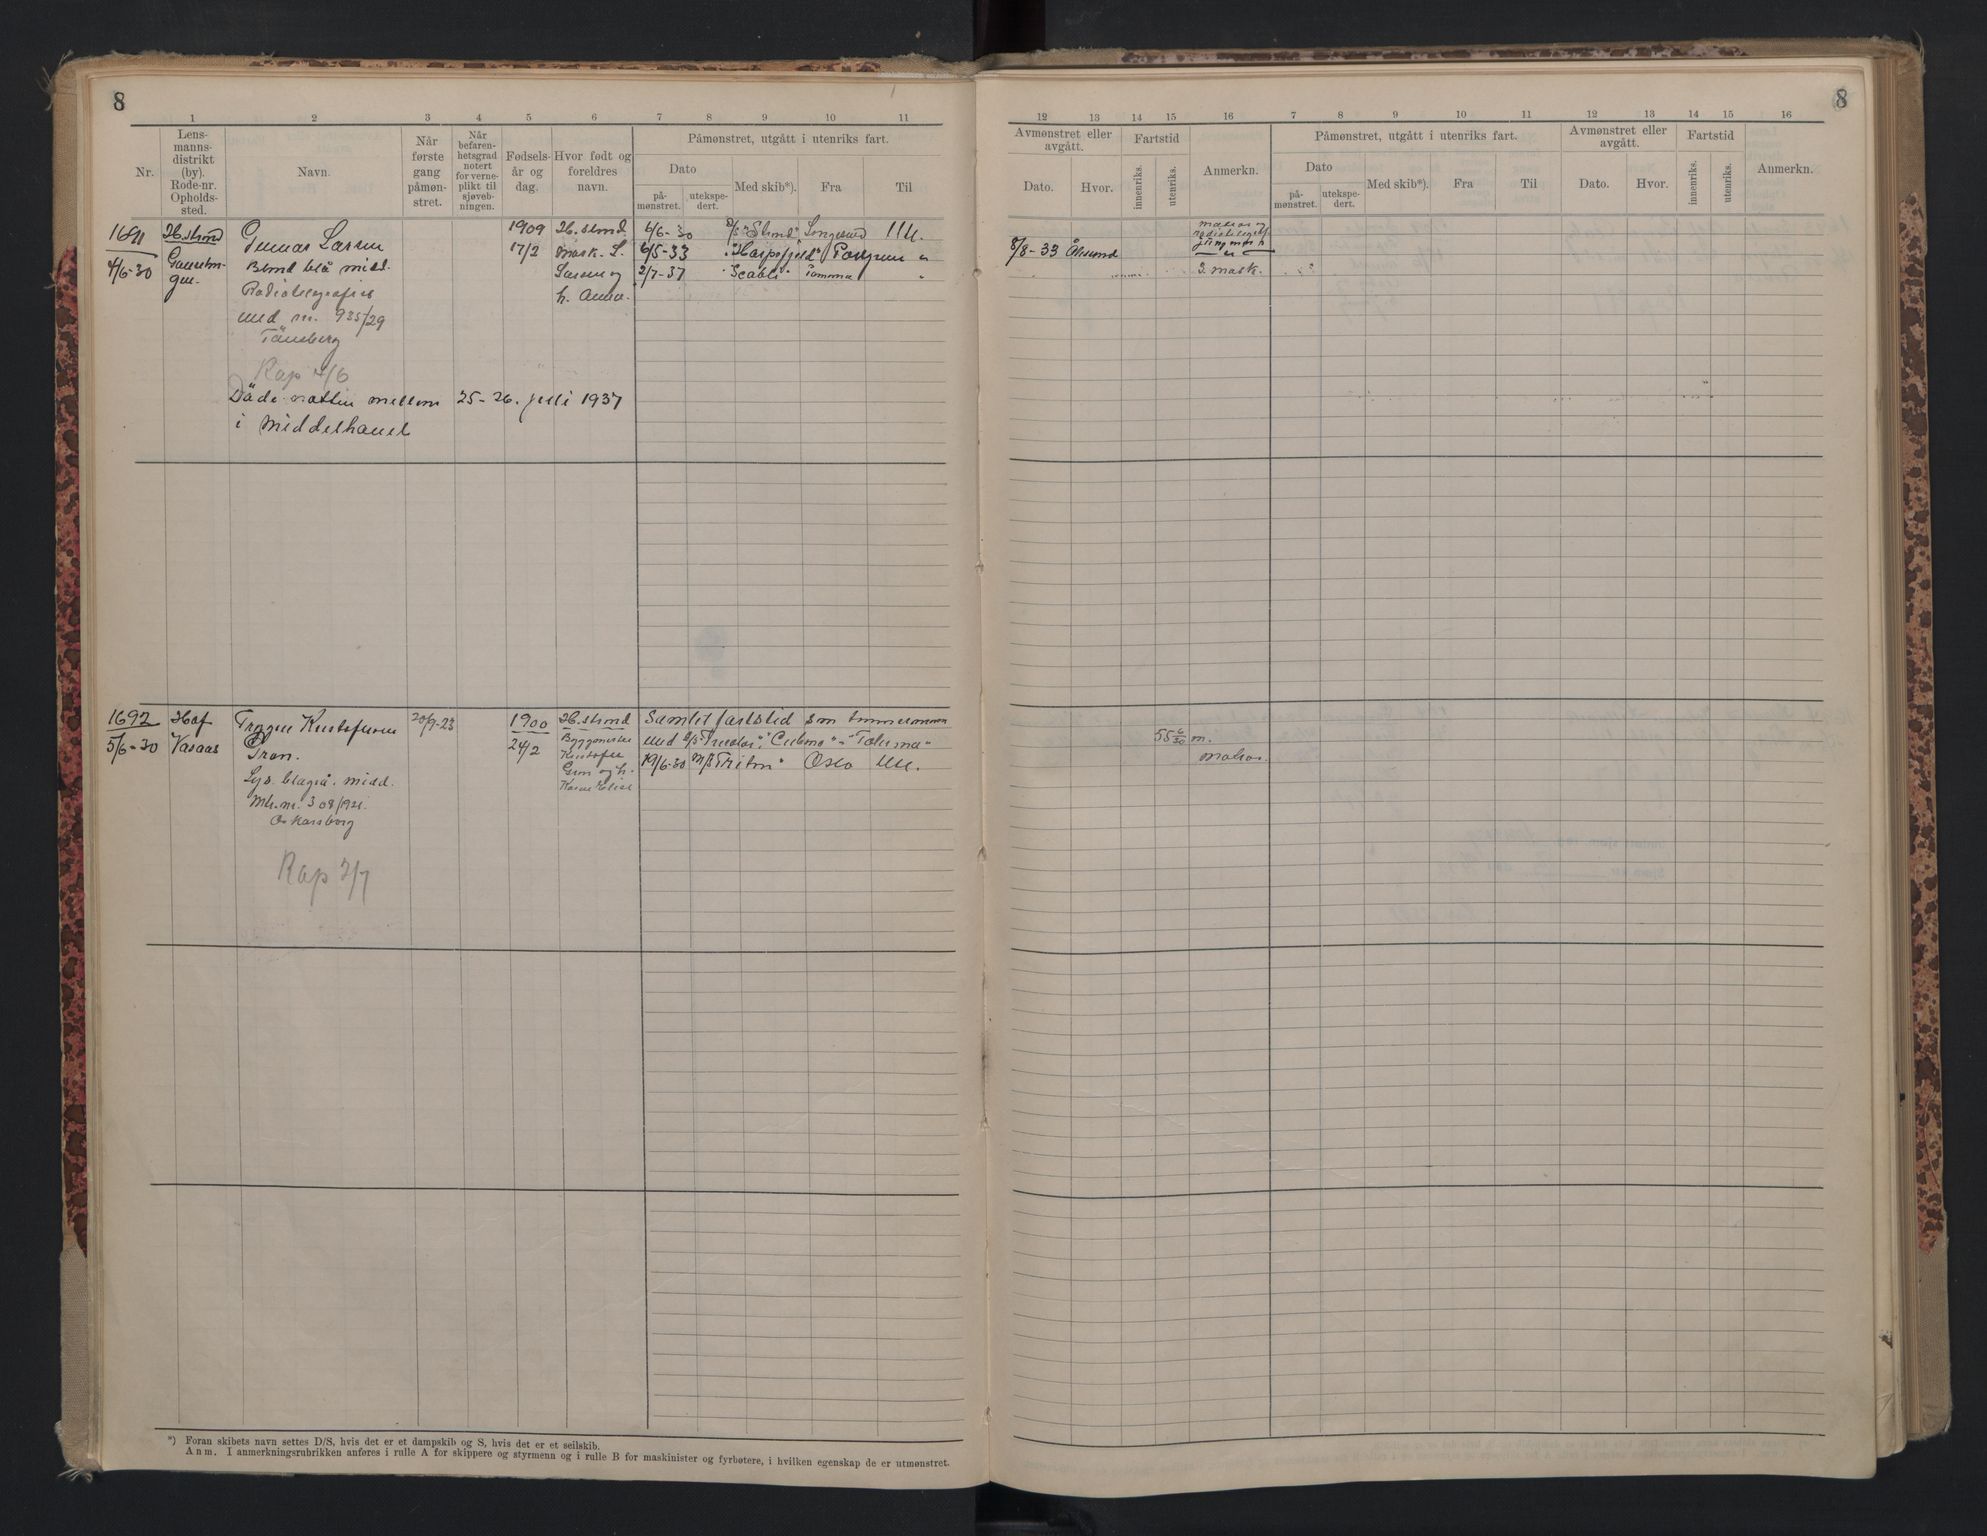 8
1 2 3 4 5 6 7 8 9 10 11
Nr.
Lens-
manns-
distrikt
(by).
Rode-nr.
Opholds-
sted.
Navn.
Når
første
gang
påmøn-
stret.
Når
befaren-
hetsgrad
notert
for verne-
plikt til
sjøveb-
ningen.
Fødsels-
år og
dag.
Hvor født og
foreldres
navn.
Påmønstret, utgått i utenriks fart.
Dato
på-
mønstret.
utekspe-
dert.
Med skib*).
Fra
Til
1691
4/6-30
H.strand
Gunnar Larsen
Blond blå midd.
Radiotelegrafist
med nr. 935/29
Tønsberg
Rap 4/6
Døde natten mellem 25-26. juli 1937
i Middelhavet
1909
17/2
H. strand
Mask. L.
Larsen og
h. Anna.
4/6-30 "Strind" Utl.
6/5-33 "
2/7-37 "
1692
5/6-30
Hof
Vasaas
Trygve Kristofersen
Gran.
Lys. blågrå. midd.
Mh. nr. 308/1921.
Oskarsborg
Rap 2/7
20/9-23
1900
24/2
H. strand
Byggmester
Kristofer
Gran og h.
Samlet fartstid som tømmermann
med
19/6-30 Oslo Utl.
*) Foran skibets navn settes D/S, hvis det er et dampskib og S, hvis det er et seilskib.
Anm. I anmerkningsrubrikken anføres i rulle A for skippere og styrmenn og i rulle B for maskinister og fyrbøtere, i hvilken egenskap de er utmønstret.
8
12 13 14 15 16 7 8 9 10 11 12 13 14 15 16
Avmønstret eller
avgått.
Dato.
Hvor.
Fartstid
innenriks.
utenriks.
Anmerkn.
Påmønstret, utgått i utenriks fart.
Dato
på-
mønstret.
utekspe-
dert.
Med skib*).
Fra
Til
Avmønstret eller
avgått.
Dato.
Hvor.
Fartstid
innenriks.
utenriks.
Anmerkn.
matros og
radiotelegrafist
8/8-33 Ålesund
3. mask.
55 6/30 m.
Matros.